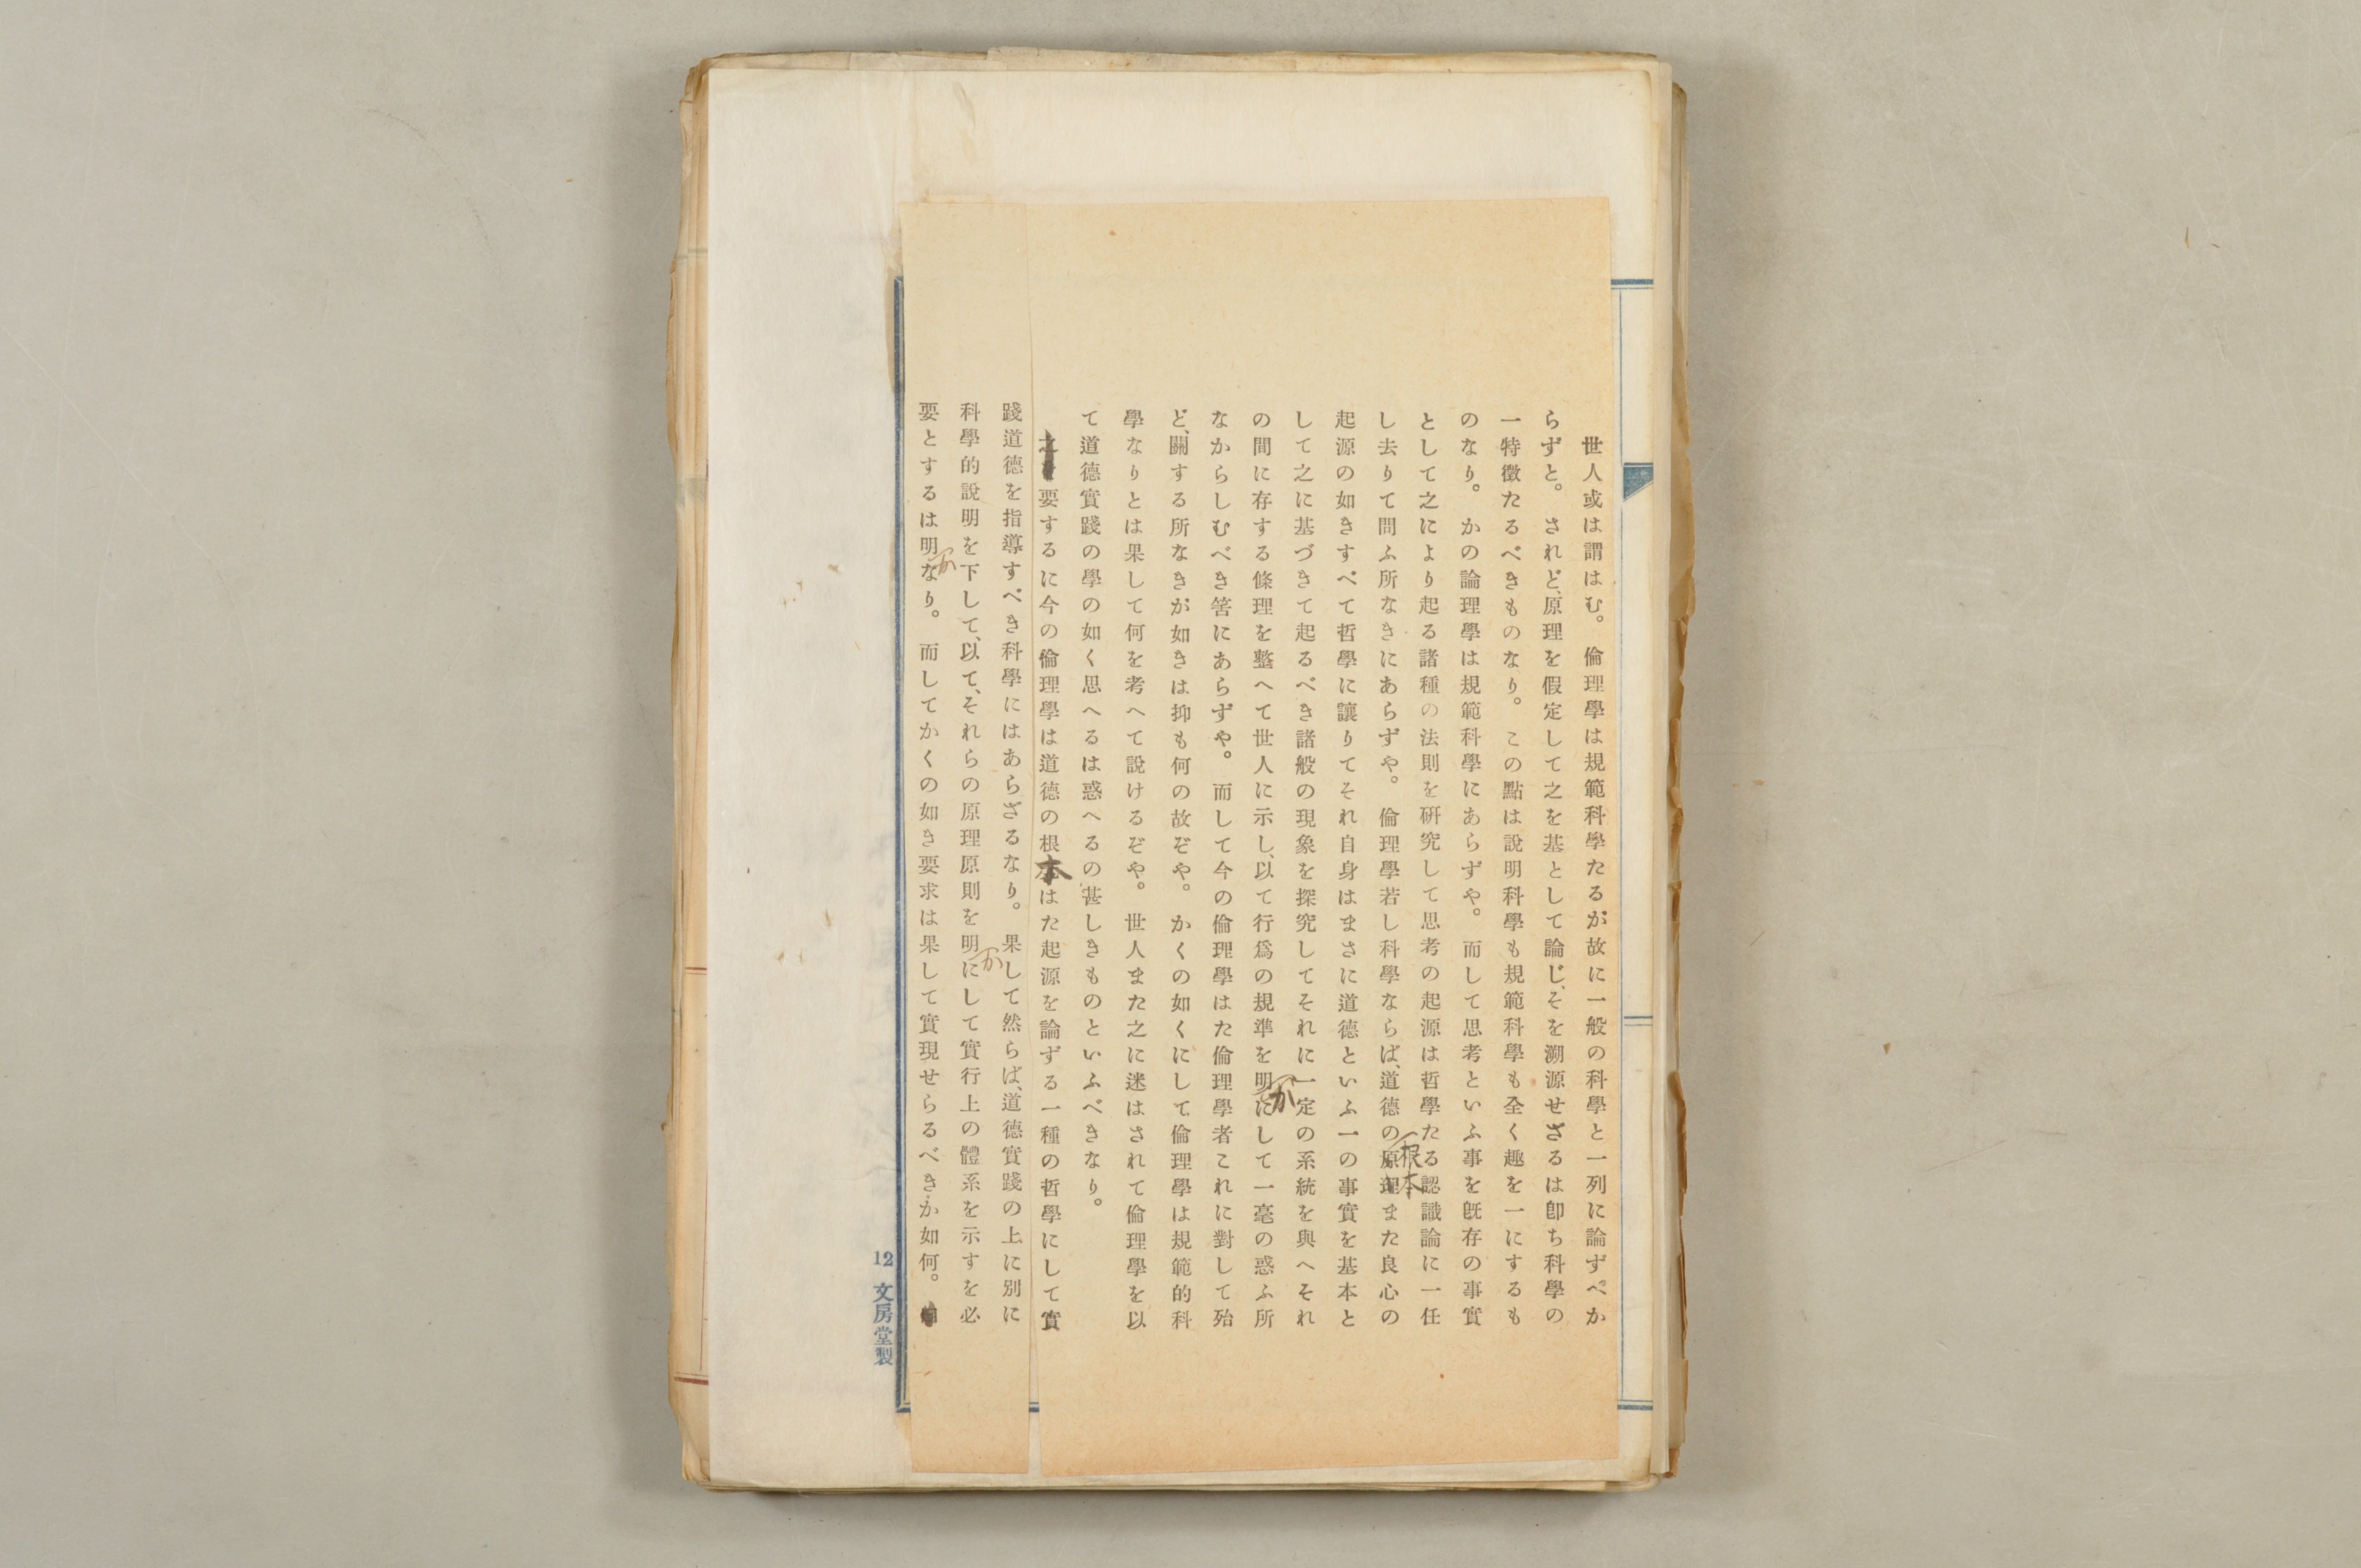 世人或は謂はむ。倫理學は規範科學たるが故に一般の科學と一列に論ずべか
らずと。されど、原理を假定して之を基として論じ、そを溯源せざるは卽ち科學の
一特徵たるべきものなり。この點は說明科學も規範科學も全く趣を一にするも
のなり。かの論理學は規範科學にあらずや。而して思考といふ事を旣存の事實
として之により起る諸種の法則を硏究して思考の起源は哲學たる認識論に一任
し去りて問ふ所なきにあらずや。倫理學若し科學ならば、道德の原理また良心の
根本
起源の如きすべて哲學に讓りてそれ自身はまさに道德といふ一の事實を基本と
して之に基づきて起るべき諸般の現象を探究してそれに一定の系統を與へそれ
の間に存する條理を整へて世人に示し、以て行爲の規準を明にして一毫の惑ふ所
か
なからしむべき筈にあらずや。而して今の倫理學はた倫理學者これに對して殆
ど、關する所なきが如きは抑も何の故ぞや。かくの如くにして倫理學は規範的科
學なりとは果して何を考へて說けるぞや。世人また之に迷はされて倫理學を以
て道德實踐の學の如く思へるは惑へるの甚しきものといふべきなり。
要するに今の倫理學は道德の根本はた起源を論ずる一種の哲學にして實
踐道德を指導すべき科學にはあらざるなり。果して然らば、道德實踐の上に別に
科學的說明を下して、以て、それらの原理原則を明にして實行上の體系を示すを必
か
要とするは明なり。而してかくの如き要求は果して實現せらるべきか如何。
か
12 文房堂製